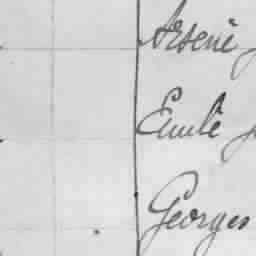 Arsène
Emile
Georges